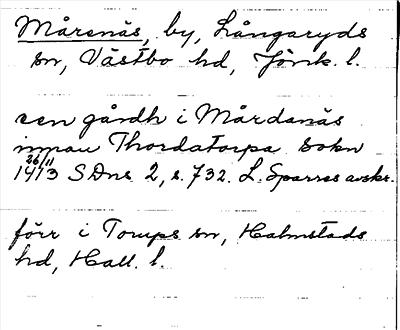 Mårenäs, by, Långaryds
sn, Västbo hd, Jönk. l.
een gårdh i Mårdanäs
innan Thordatorpa sokn
26/11
1413 SDns 2, s. 732. L. Sparres avskr.
förr i Torups sn, Halmstads
hd, Hall. l.